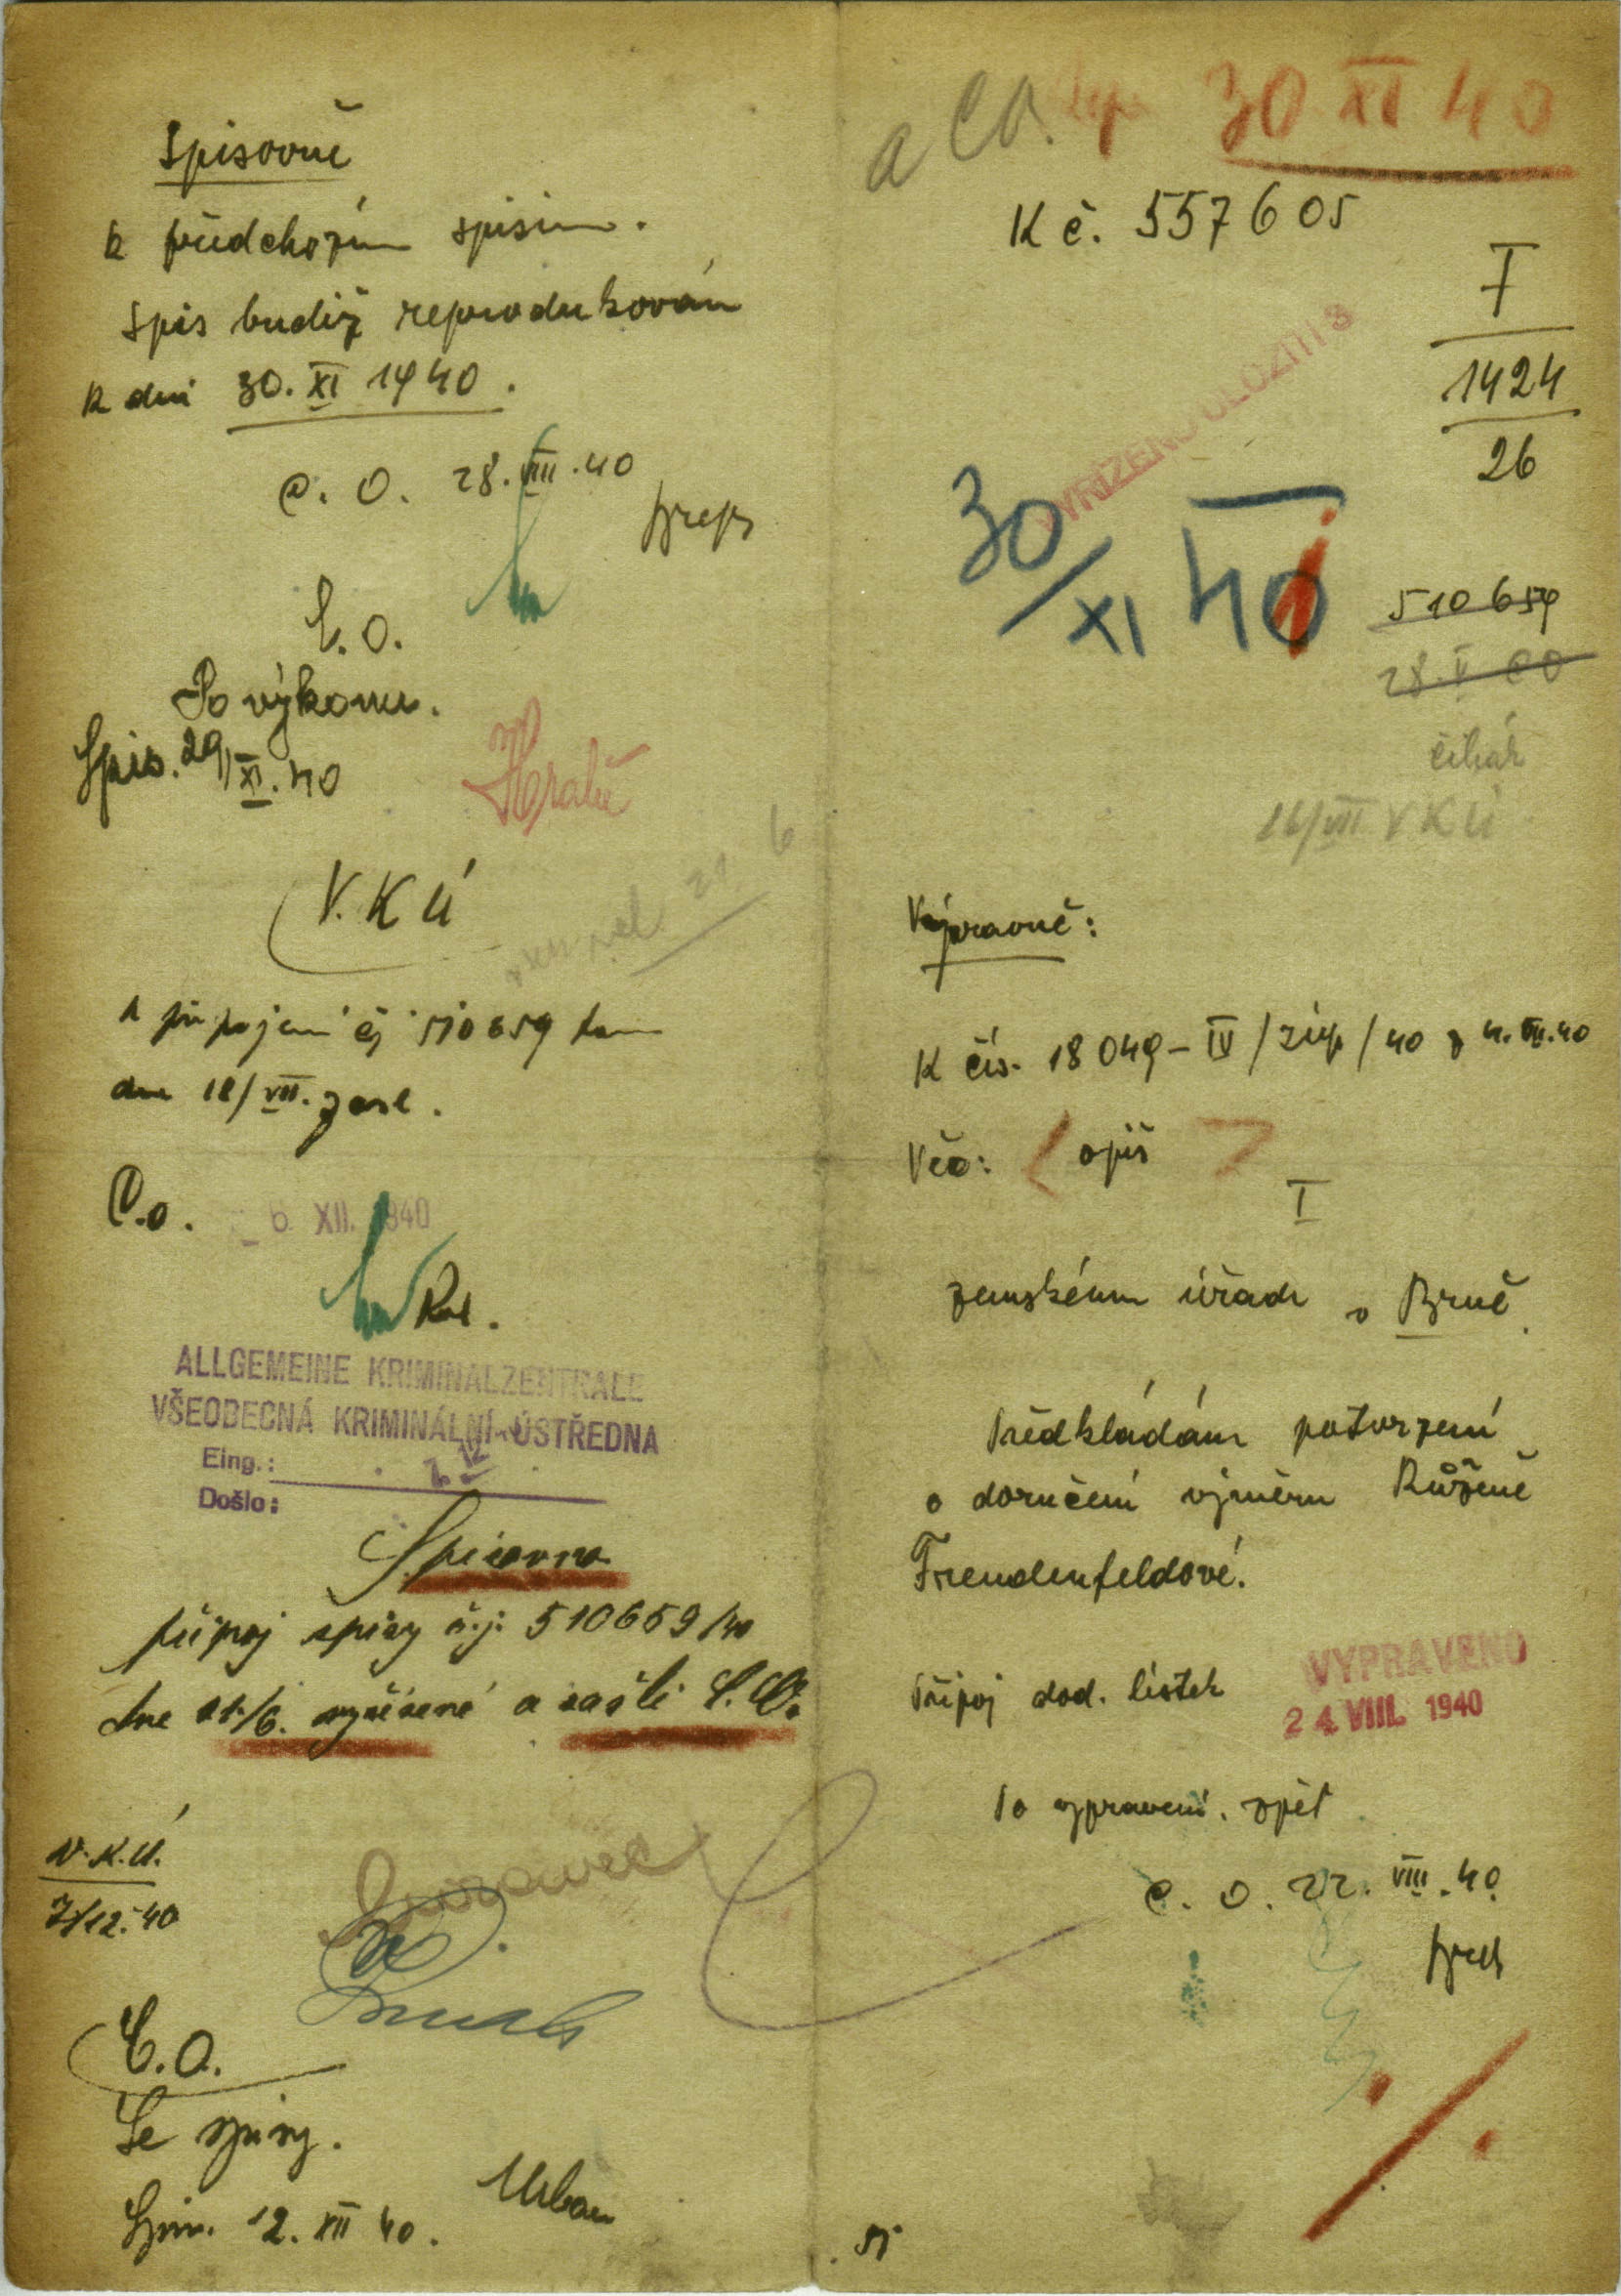 Spisovně
k předchozím spisům.
Spis budiž reprodukován
k dni 30. XI 1940.
C. O. 28. VIII. 40
C. O.
Po výkonu.
Spis. 29/XI. 40
V. K Ú
k připojení čj 510659 tam
dne 18/VII. zasl.
C. o. 6. XII. 1940
ALLGEMEINE KRIMINALZENTRALE
VŠEOBECNÁ KRIMINÁLNÍ ÚSTŘEDNA
Eing.:
Došlo:
7. 12.
Spisovna
připoj spisy č.j. 510659/40
dne 21./6. vyřízené a zašli C. O.
V. K. Ú.
7/12. 40
C. O.
Se spisy.
Spis. 12. XII 40.
Urban
a CO. 30 XI 40
K č. 557605
I
1424
26
VYŘÍZENO ULOŽITI
30/XI 40
510659
28. V
čihár
16/VII V K Ú
Výpravně:
K čís. 18049 – IV / 40 z 4. VII. 40
Věc: opiš
I
zemskému úřadu v Brně.
Předkládám potvrzení
o doručení výměru Růženě
Freudenfeldové.
Připoj dod. lístek
VYPRAVENO
24. VIII. 1940
Po vypravení. zpět
C. O. 22. VIII. 40.